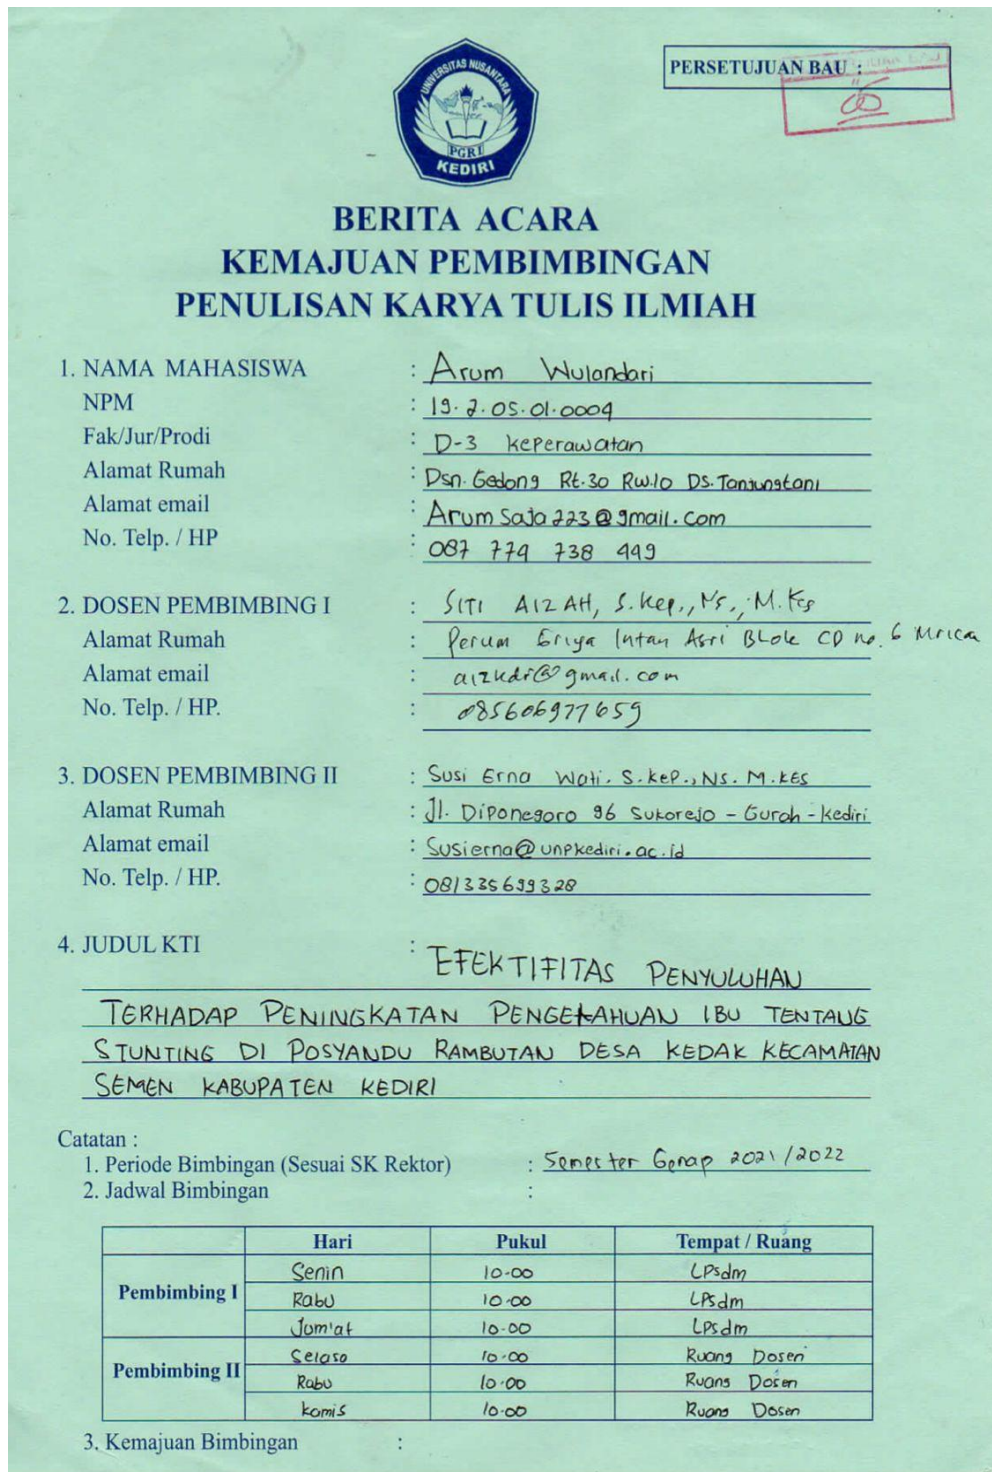 UNIVERSITAS NUSANTARA
PGRI
KEDIRI
PERSETUJUAN BAU :
BERITA ACARA
KEMAJUAN PEMBIMBINGAN
PENULISAN KARYA TULIS ILMIAH
1. NAMA MAHASISWA : Arum Wulandari
NPM : 19.2.05.01.0004
Fak/Jur/Prodi : D-3 Keperawatan
Alamat Rumah : Dsn. Gedong Rt.30 Rw.10 DS. Tanjungtani
Alamat email : Arumsaja223@gmail.com
No. Telp. / HP : 087 774 738 449
2. DOSEN PEMBIMBING I : SITI AIZAH, S.Kep., Ns., M.Kes
Alamat Rumah : Perum Griya Intan Asri Blok CD no. 6 Mrica
Alamat email : aizkdr@gmail.com
No. Telp. / HP. : 085606977659
3. DOSEN PEMBIMBING II : Susi Erna Wati. S.keP., NS. M.kES
Alamat Rumah : Jl. Diponegoro 96 Sukorejo - Gurah - Kediri
Alamat email : Susierna@unpkediri.ac.id
No. Telp. / HP. : 081335699328
4. JUDUL KTI : EFEKTIFITAS PENYULUHAN
TERHADAP PENINGKATAN PENGETAHUAN IBU TENTANG
STUNTING DI POSYANDU RAMBUTAN DESA KEDAK KECAMATAN
SEMEN KABUPATEN KEDIRI
Catatan :
1. Periode Bimbingan (Sesuai SK Rektor) : Semester Genap 2021/2022
2. Jadwal Bimbingan :
Hari Pukul Tempat / Ruang
Pembimbing I Senin 10-00 LPsdm
Rabu 10-00 LPsdm
Jum'at 10-00 LPsdm
Pembimbing II Selasa 10-00 Ruang Dosen
Rabu 10-00 Ruang Dosen
kamis 10-00 Ruang Dosen
3. Kemajuan Bimbingan :